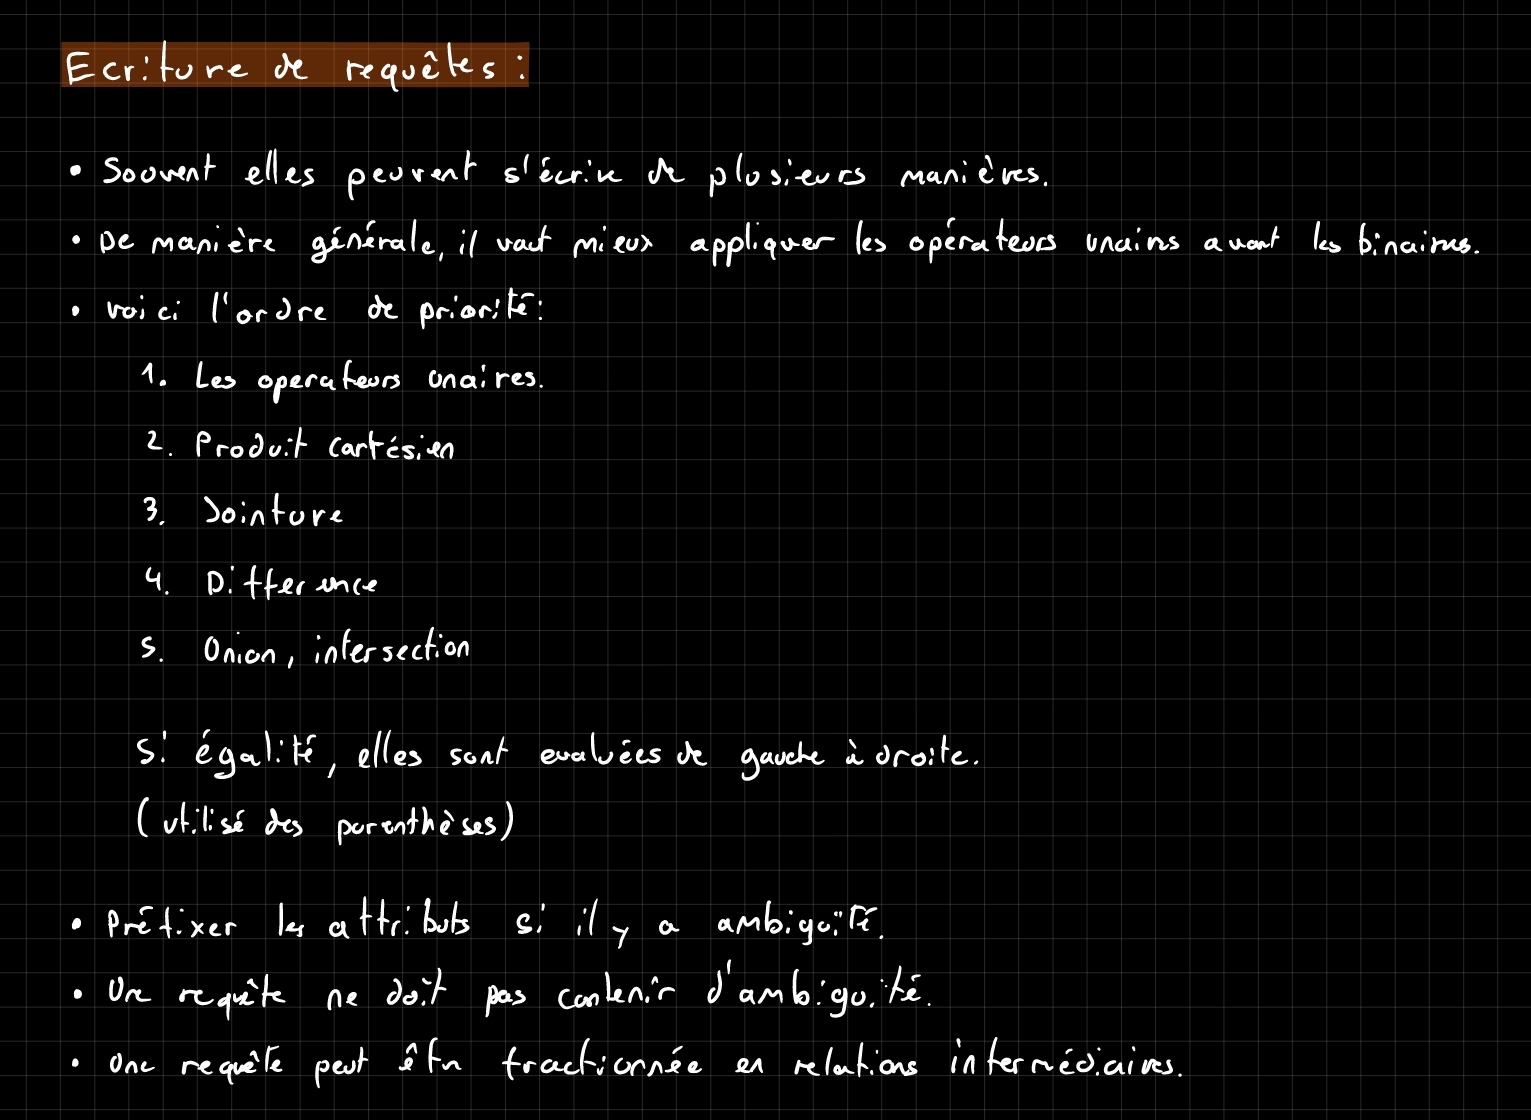 Ecriture de requêtes :
• Souvent elles peuvent s'écrire de plusieurs manières.
• De manière générale, il vaut mieux appliquer les opérateurs unaires avant les binaires.
• Voici l'ordre de priorité :
1. Les operateurs unaires.
2. Produit cartésien
3. Jointure
4. Difference
5. Union, intersection
Si égalité, elles sont evaluées de gauche à droite.
(utilisé des parenthèses)
• Préfixer les attributs si il y a ambiguïté.
• Une requête ne doit pas contenir d'ambiguïté.
• Une requête peut être fractionnée en relations intermédiaires.